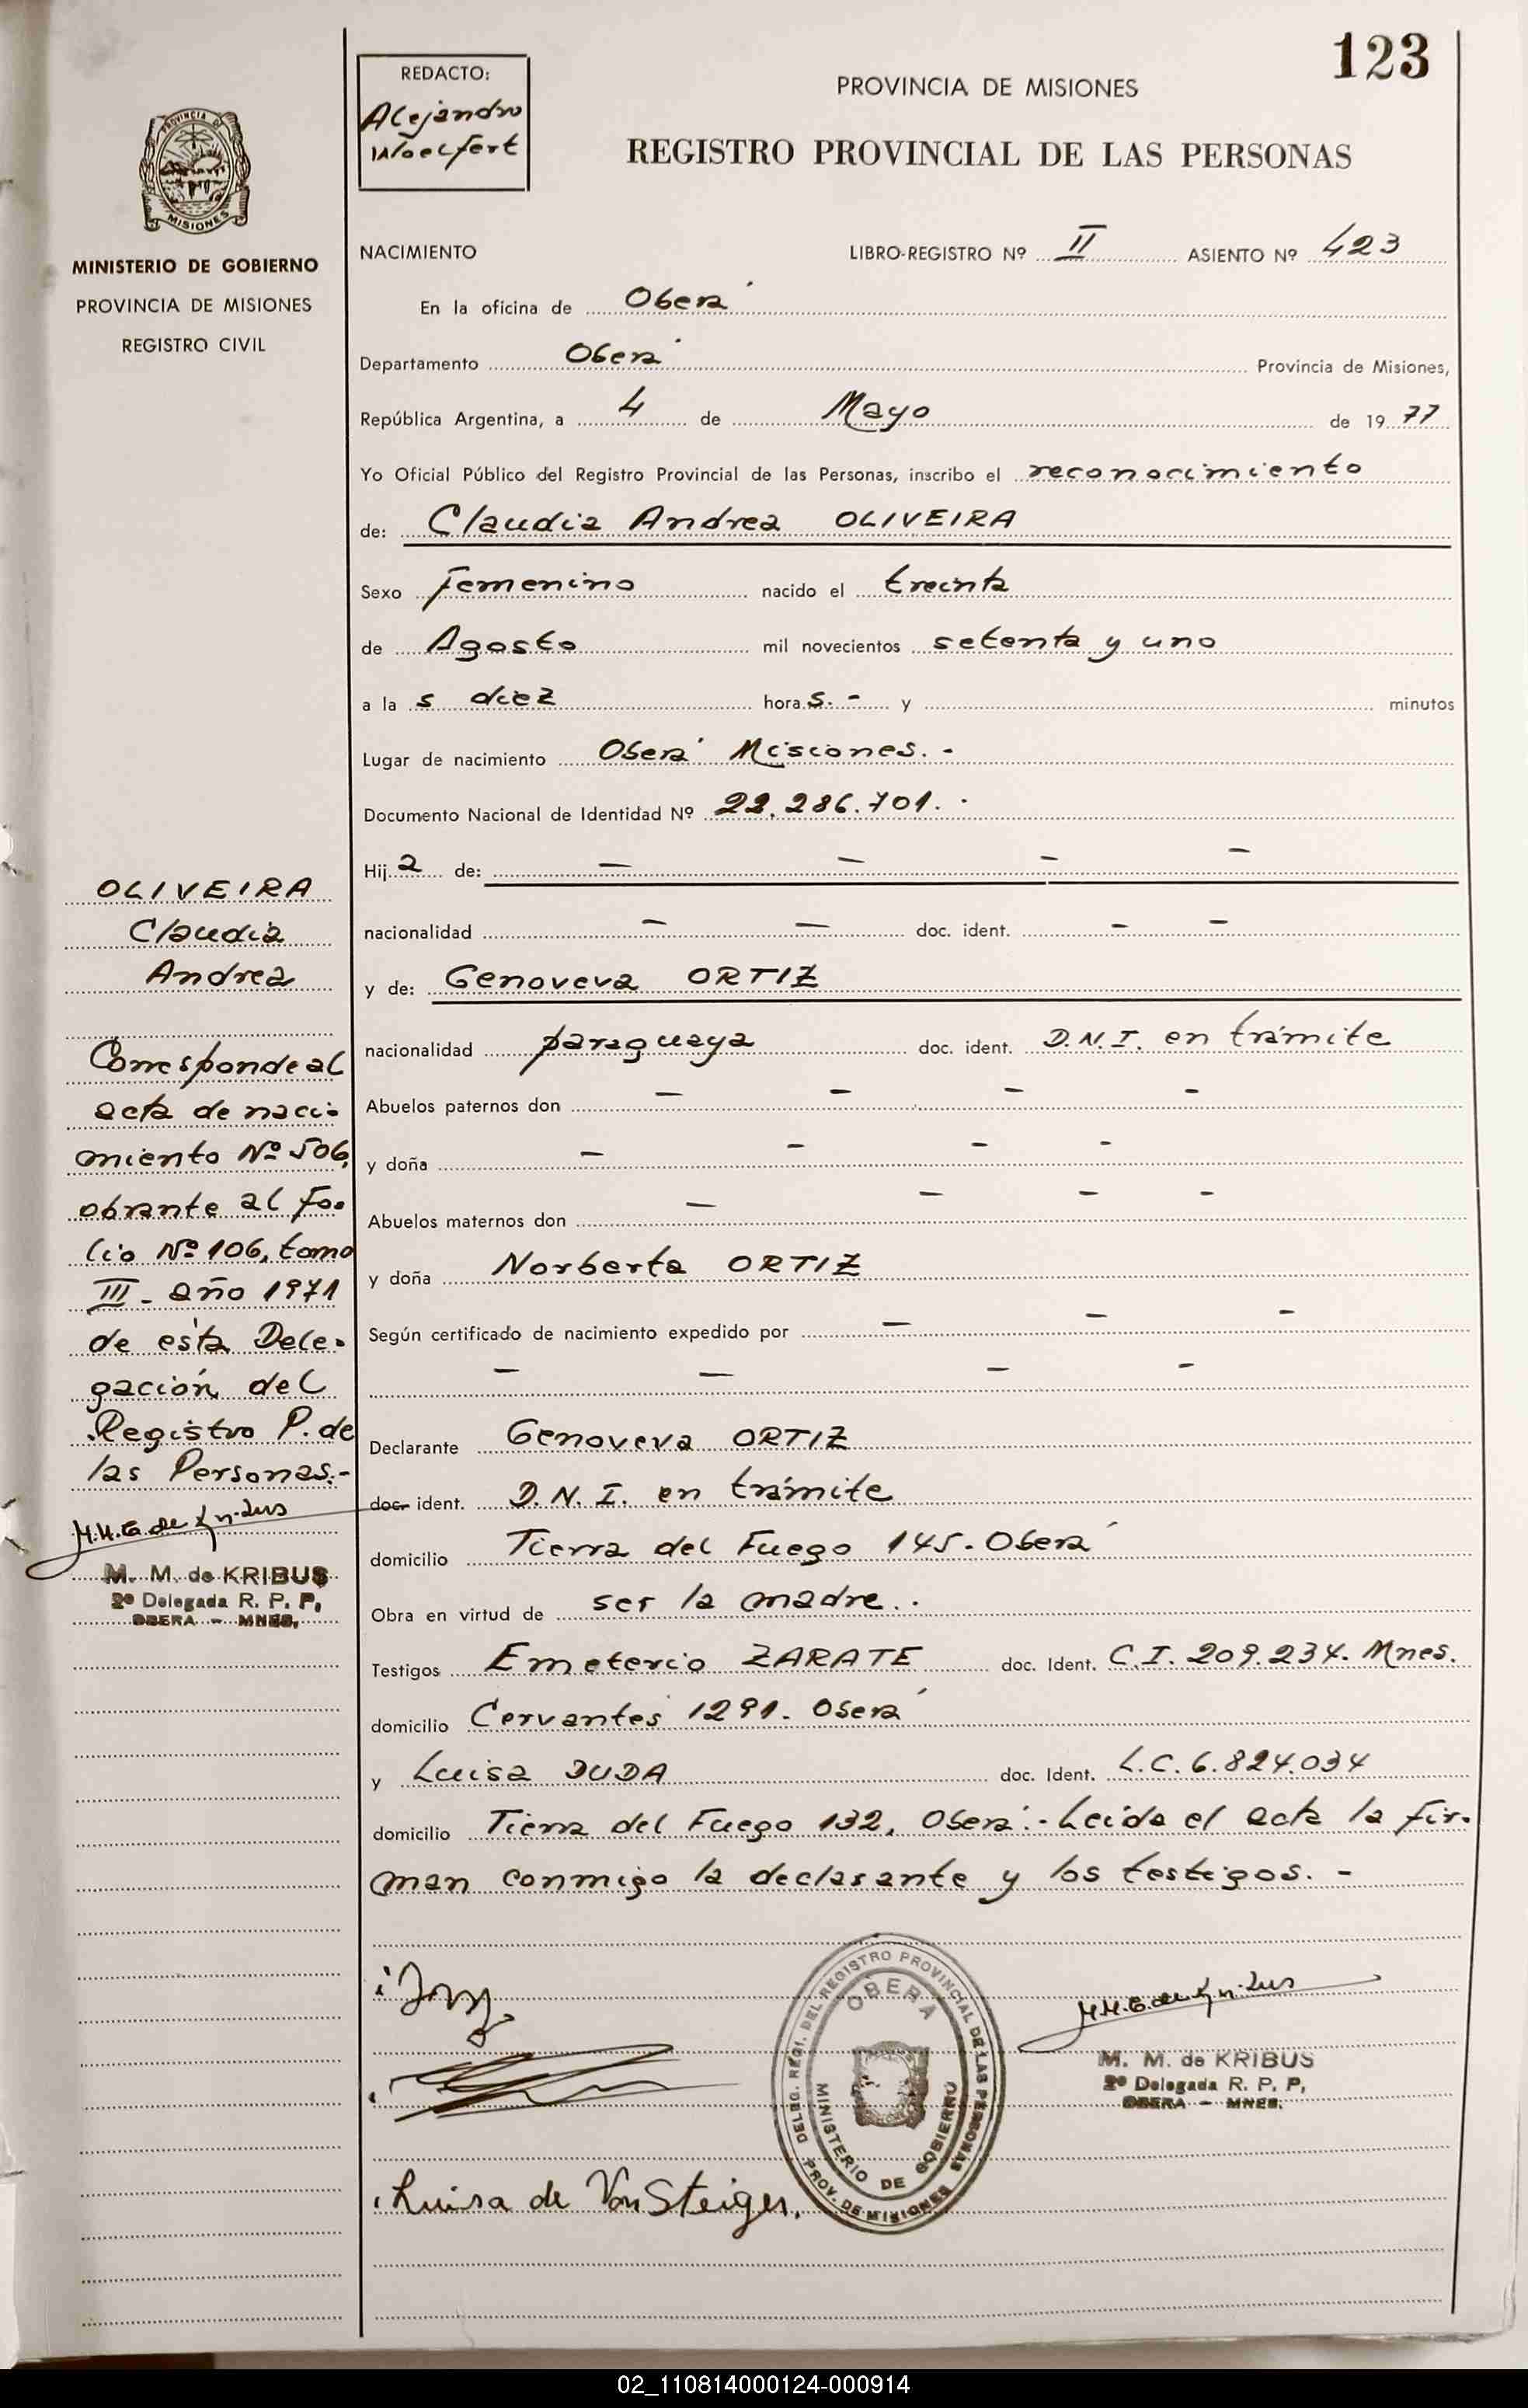 123
REDACTO:
Alejandro
Woelfert
PROVINCIA DE MISIONES
REGISTRO PROVINCIAL DE LAS PERSONAS
PROVINCIA DE
MISIONES
MINISTERIO DE GOBIERNO
PROVINCIA DE MISIONES
REGISTRO CIVIL
NACIMIENTO LIBRO-REGISTRO Nº II ASIENTO Nº 423
En la oficina de Oberá
Departamento Oberá Provincia de Misiones,
República Argentina, a 4 de Mayo de 1977
Yo Oficial Público del Registro Provincial de las Personas, inscribo el reconocimiento
de: Claudia Andrea OLIVEIRA
Sexo Femenino nacido el treinta
de Agosto mil novecientos setenta y uno
a las diez horas. - y minutos
Lugar de nacimiento Oberá Misiones. -
Documento Nacional de Identidad Nº 22.286.701. -
Hija de: — — — —
nacionalidad — — doc. ident. — —
y de: Genoveva ORTIZ
nacionalidad paraguaya doc. ident. D.N.I. en trámite
Abuelos paternos don — — — —
y doña — — — —
Abuelos maternos don — — — —
y doña Norberta ORTIZ
Según certificado de nacimiento expedido por — — —
— — — —
Declarante Genoveva ORTIZ
doc. ident. D.N.I. en trámite
domicilio Tierra del Fuego 145. Oberá
Obra en virtud de ser la madre. .
Testigos Emeterio ZARATE doc. Ident. C.I. 209.234. Mnes.
domicilio Cervantes 1291. Oberá
y Luisa DUDA doc. Ident. L.C. 6.824.034
domicilio Tierra del Fuego 132, Oberá.- Leída el acta la fir-
man conmigo la declarante y los testigos. -
OLIVEIRA
Claudia
Andrea
Corresponde al
acta de naci-
miento Nº 506,
obrante al fo-
lio Nº 106, tomo
III - año 1971
de esta Dele-
gación del
Registro P. de
las Personas.-
M. M. de KRIBUS
2º Delegada R. P. P.
OBERA - MNES.
DELEG. REGI. DEL REGISTRO PROVINCIAL DE LAS PERSONAS
OBERA
MINISTERIO DE GOBIERNO
PROV. DE MISIONES
M. M. de KRIBUS
2º Delegada R. P. P.
OBERA - MNES.
Luisa de Von Steiger.
02_110814000124-000914